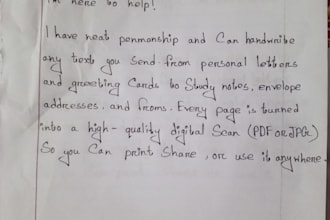 I'm here to help!
I have neat penmonship and Can handwrite
any text you Send from personal letters
and greeting Cards to Study notes, envelope
addresses, and froms. Every page is turned
into a high-quality digital Scan (PDF or JPG)
So you Can print Share, or use it anywhere.